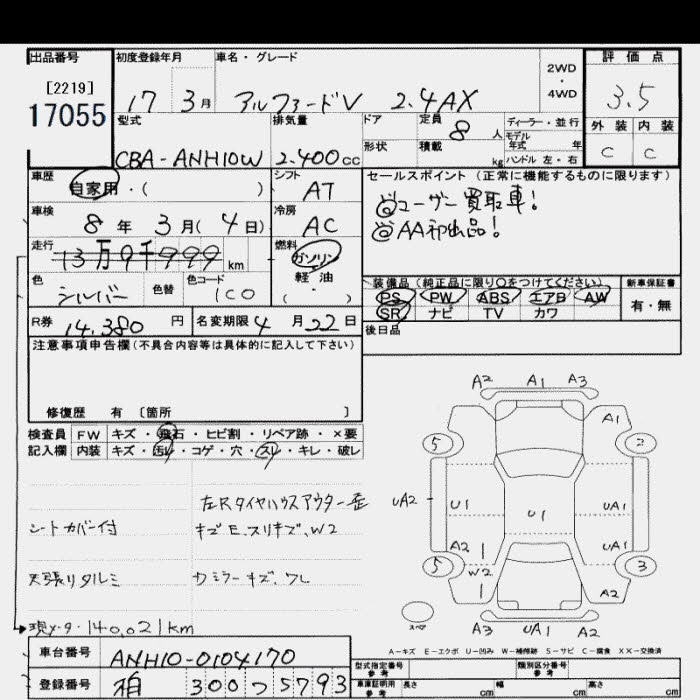 出品番号 初度登録年月 車名・グレード 2WD・4WD 評価点
[2219]
17055 17 3月 アルファードV 2.4AX 3.5
型式 排気量 ドア 定員 8人 ディーラー・並行 外装 内装
形状 積載 kg モデル年式 年 ハンドル 左・右
CBA-ANH10W 2.400cc C C
車歴 自家用・( ) シフト AT セールスポイント(正常に機能するものに限ります)
@ユーザー買取車!
車検 8年 3月(4日) 冷房 AC @AA初出品!
走行 13万9千999km 燃料 ガソリン 軽油 ・( )
色 シルバー 色替 色コード 1C0
装備品(純正品に限り○をつけてください) 新車保証書
PS PW ABS エアB AW 有・無
SR ナビ TV カワ
R券 14.380円 名変期限 4月22日 後日品
注意事項申告欄(不具合内容等は具体的に記入して下さい)
修復歴 有 〔箇所 〕
検査員 FW キズ・飛石・ヒビ割・リペア跡・×要
記入欄 内装 キズ・汚レ・コゲ・穴・スレ・キレ・破レ
左Rタイヤハウスアウター歪
シートカバー付 キズE.スリキズ.W2
天張りタルミ カミラーキズ.ワレ
現メータ・140,021km
A2 A1 A3
A1
5 2
UA2 U1 U1 UA1
A2 UA1
5 W2 3
A2
スペア A3 UA1 A2
A-キズ E-エクボ U-凹み W-補修跡 S-サビ C-腐食 XX-交換済
車台番号 ANH10-0104170 型式指定番号 参考 類別区分番号 参考
登録番号 柏 300 つ 5793 車庫証明用 参考 長さ cm 幅 cm 高さ cm